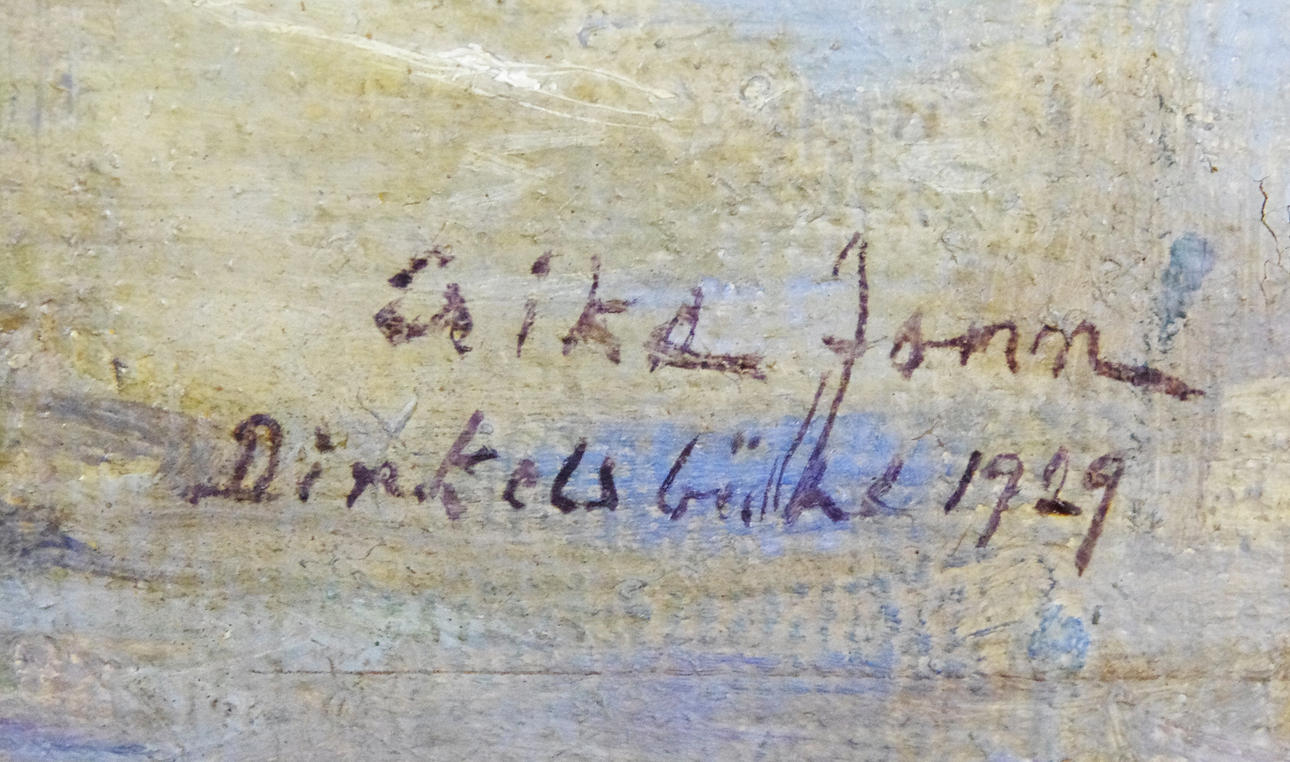 Erika Jonn
Dinkelsbühl 1929